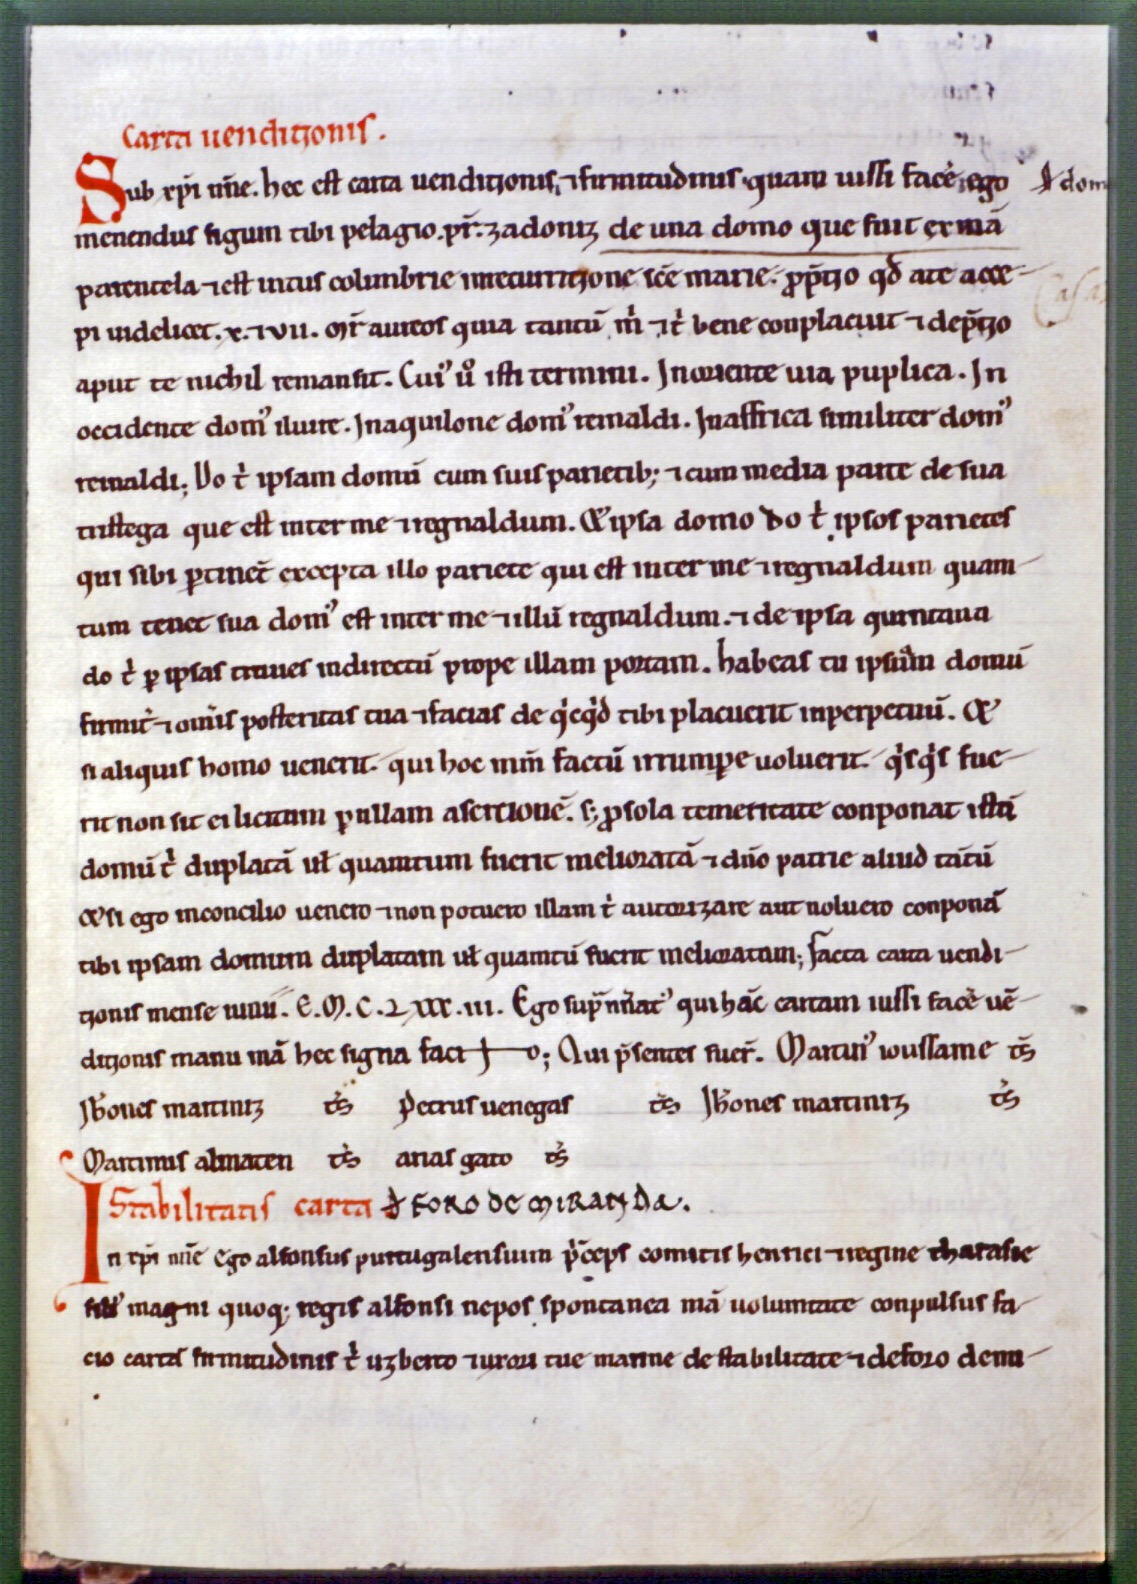 Carta uendicionis.
Sub xp̄i nn̄e. hec est carta uendicionis, ⁊ firmitudinis quam iussi facẽ ego
menendus figum tibi pelagio. pr̄. zadoniz de una domo que fuit ex mā
parentela ⁊ est intus colimbrie sc̄e marie. p̄p̄cio qđ a te acce-
pi uidelicet. x. ⁊ vii. mr̄ aureos quia tantū m̄ ⁊ t̄ bene conplacuit ⁊ de p̄cio
aput te nichil remansit. Cui' ů isti termini. In oriente uia puplica. In
occidente dom' iluire. In aquilone dom' reinaldi. In affrica similiter dom'
reinaldi; Do t̄ ipsam domū cum suis parietib; ⁊ cum media parte de sua
tristega que est inter me ⁊ regnaldum. Et ipsa domo do t̄ ipsos parietes
qui sibi ꝑtinet̄ excepta illo pariete qui est inter me ⁊ regnaldum quam-
tum tenet sua dom' est inter me ⁊ illū regnaldum. ⁊ de ipsa quintana
do t̄ ꝑ ipsas traues indirectū prope illam portam. habeas tu ipsam domū
firmit̄ ⁊ om̄is posteritas tua ⁊ facias de qͥcqͥd tibi placuerit inperpetuū. Et
si aliquis homo uenerit. qui hoc factū irrumpere uoluerit. qͥsqͥs fue-
rit non sit ei licitum ꝑ nullam asertionē. s; ꝓ sola temeritate conponat istā
domū t̄ duplatā ul̄ quamtum fuerit melioratā ⁊ dn̄o patrie aliud tātū
Et si ego inconcilio uenero ⁊ non potuero illam t̄ autorizare aut noluero conponā
tibi ipsam domum duplatam ul̄ quamtū fuerit melioratam; facta carta uendi-
cionis mense iunii. E. M. C. LXXX.iii. Ego qui hāc cartam iussi facẽ uē-
dicionis manu mā hec signa faci o; Qui p̄sentes fuer̄. Martin' ioussame t̄s
Ioh̄ones martiniz t̄s Petrus uenegas t̄s Ioh̄ones martiniz t̄s
Martinus almaten t̄s arias gato t̄s
Stabilitatis carta đ foro de miranda.
In xp̄i nn̄e Ego alfonsus purtugalensium p̄ceps comitis henrici ⁊ regine tharasie
filius magni quoq; regis alfonsi nepos spontanea mā uoluntate conpulsus fa-
cio cartā firmitudinis t̄ uzberto ⁊ uxori tue marine de stabilitate ⁊ de foro de nu-
đ dom
Casa